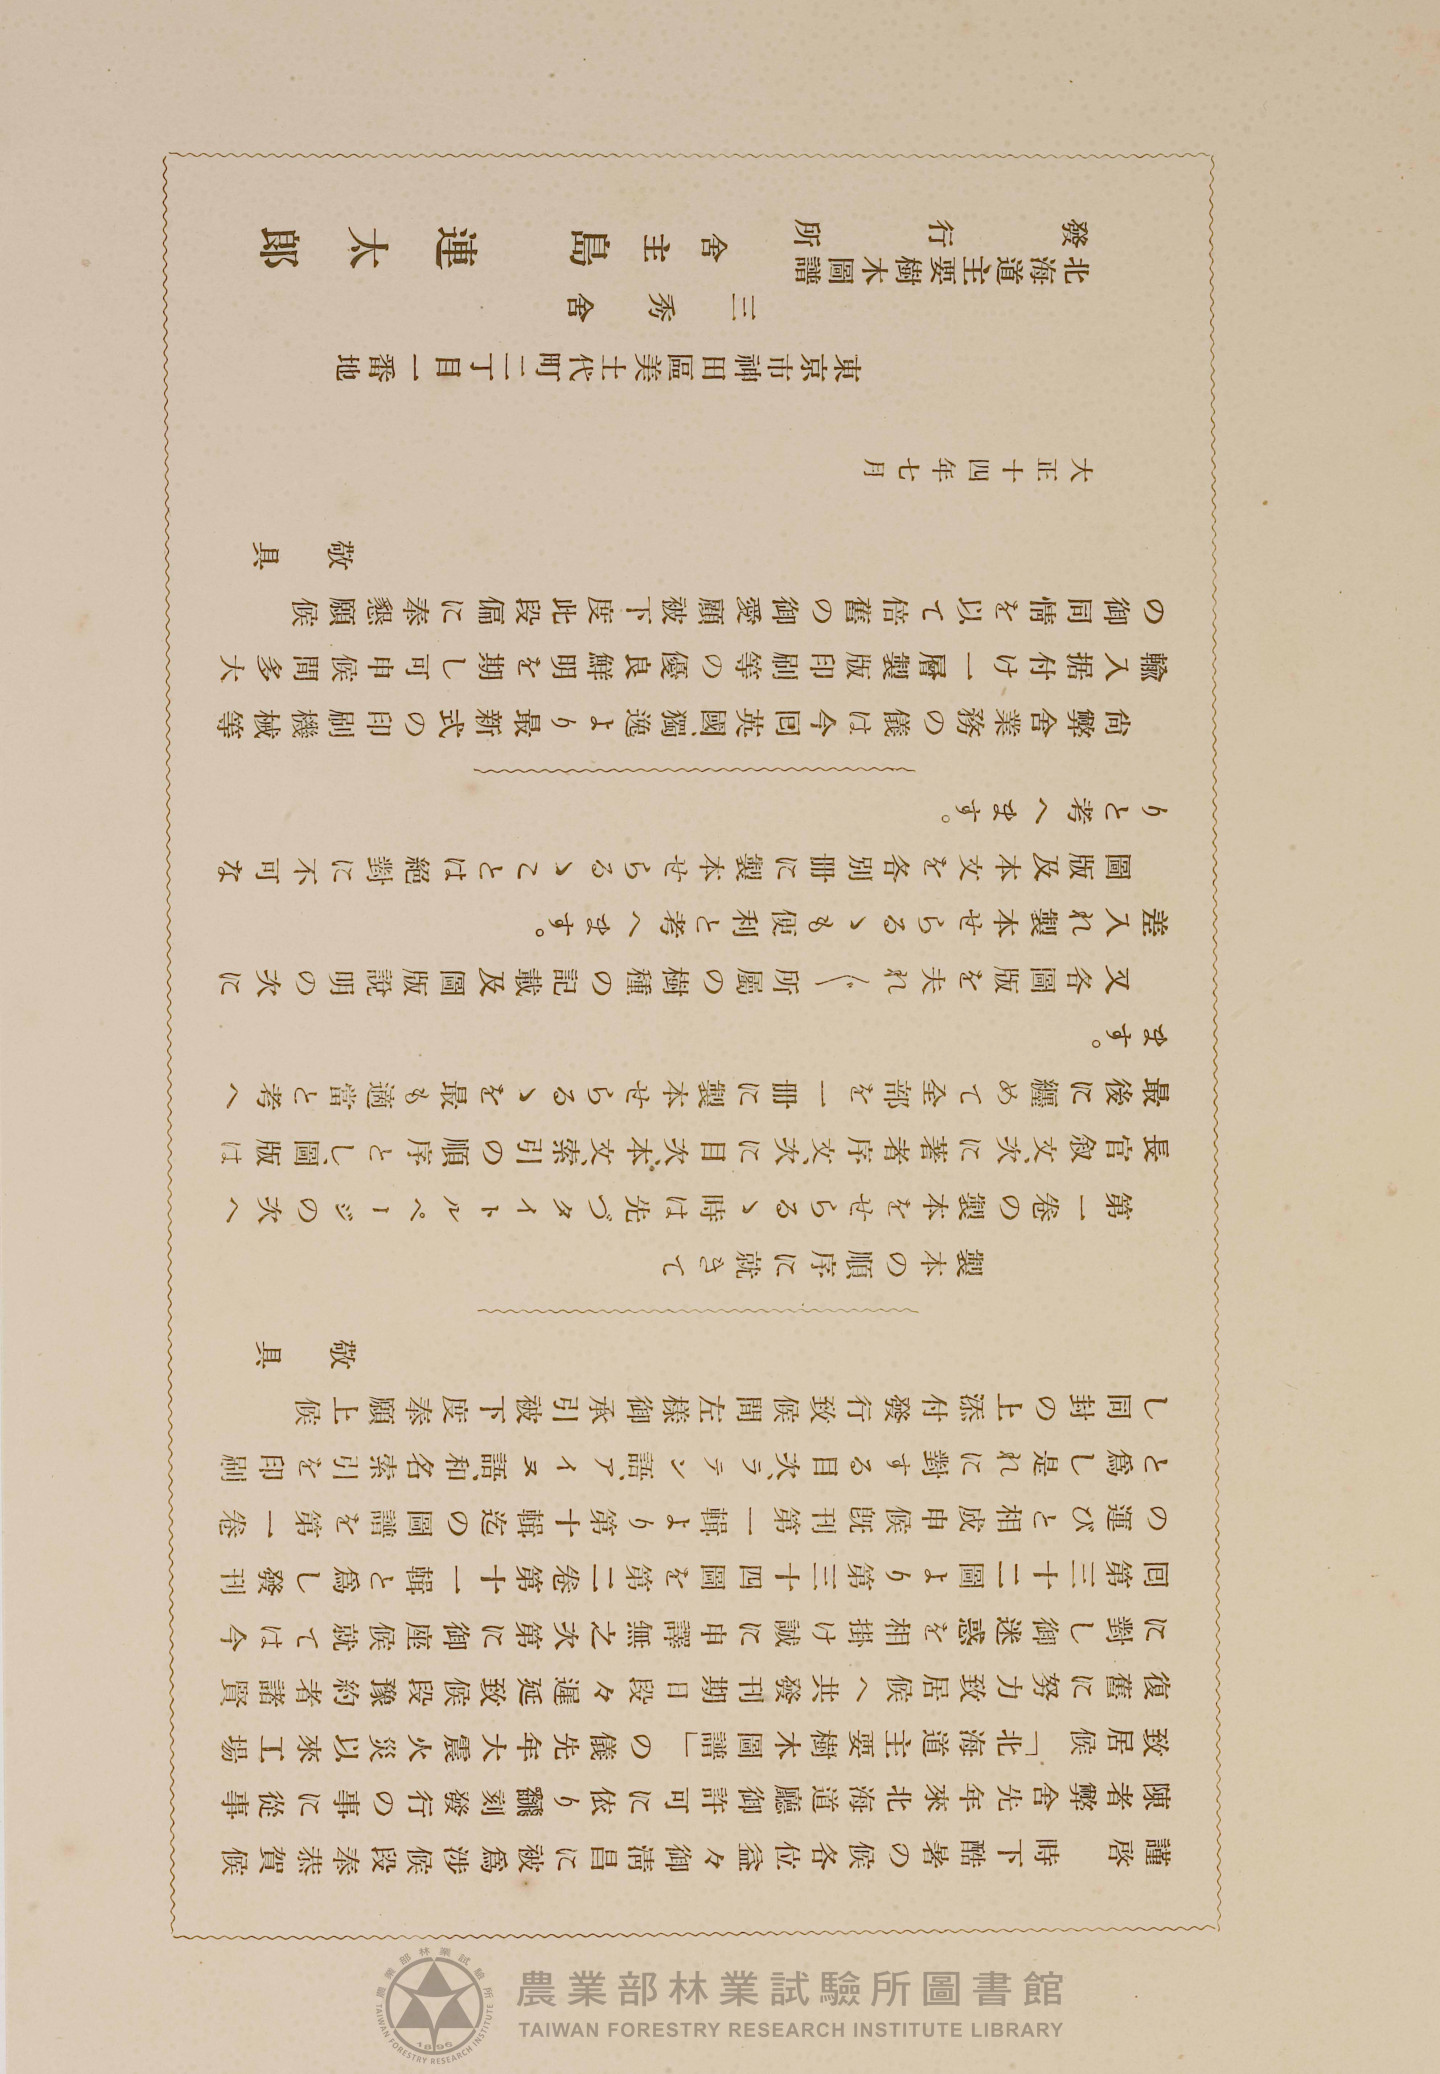 謹啓　時下酷暑の候各位益々御淸昌に被爲涉候段奉恭賀候
陳者弊舍先年來北海道廳御許可に依り飜刻發行の事に從事
致居候「北海道主要樹木圖譜」の儀先年大震火災以來工場
復舊に努力致居候へ共發刊期日段々遲延致候段豫約者諸賢
に對し御迷惑を相掛け誠に申譯無之次第に御座候就ては今
回第三十二圖より第三十四圖を第二卷第十一輯と爲し發刊
の運びと相成申候旣刊第一輯より第十輯迄の圖譜を第一卷
と爲し是れに對する目次、ラテン語、アイヌ語、和名索引を印刷
し同封の上添付發行致候間左樣御承引被下度奉願上候
敬具
製本の順序に就きて
第一卷の製本をせらるゝ時は先づタイトルページの次へ
長官敘文、次に著者序文、次に目次、本文、索引の順序とし、圖版は
最後に纒めて全部を一冊に製本せらるゝを最も適當と考へ
ます。
又各圖版を夫れ〴〵所屬の樹種の記載及圖版說明の次に
差入れ製本せらるゝも便利と考へます。
圖版及本文を各別冊に製本せらるゝことは絕對に不可な
りと考へます。
尙弊舍業務の儀は今回英國、獨逸より最新式の印刷機械等
輸入据付け一層製版印刷等の優良鮮明を期し可申候間多大
の御同情を以て倍舊の御愛顧被下度此段偏に奉懇願候
敬具
大正十四年七月
東京市神田區美土代町二丁目一番地
三秀舍
北海道主要樹木圖譜
發行所
舍主 島連太郎
農業部林業試驗所圖書館
TAIWAN FORESTRY RESEARCH INSTITUTE LIBRARY
農業部林業試驗所
TAIWAN FORESTRY RESEARCH INSTITUTE
1896